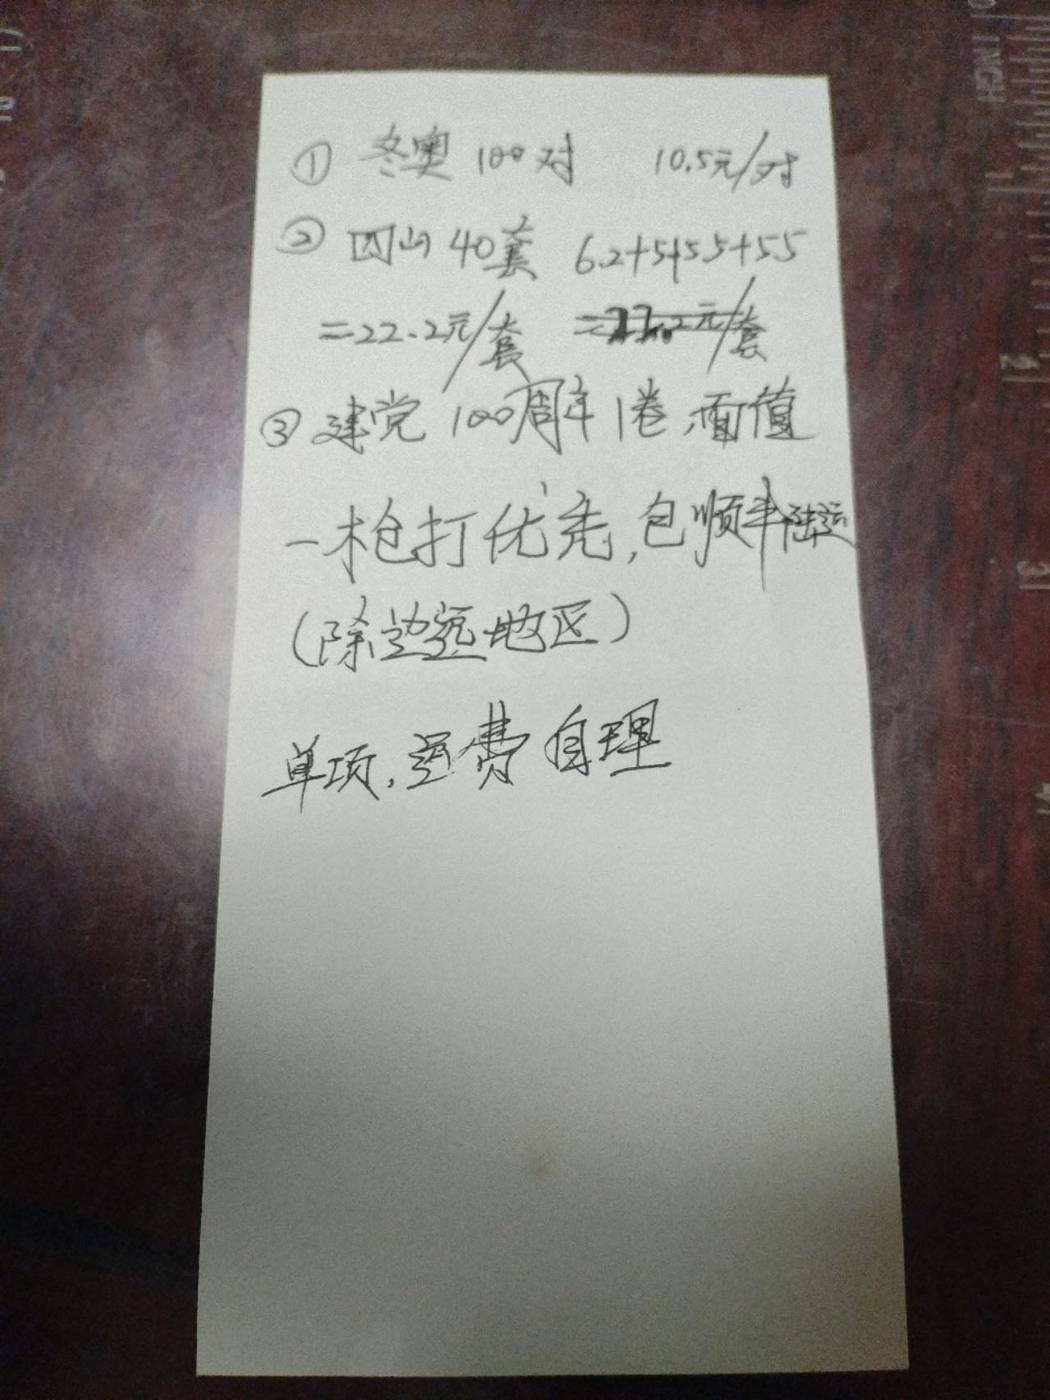 ① 冬奥 100对 10.5元/对
② 四山 40套 6.2+5+5.5+5.5
=22.2元/套
③ 建党 100周年 1卷,面值
一枪打优先,包顺丰陆运
(除边远地区)
单项,运费自理